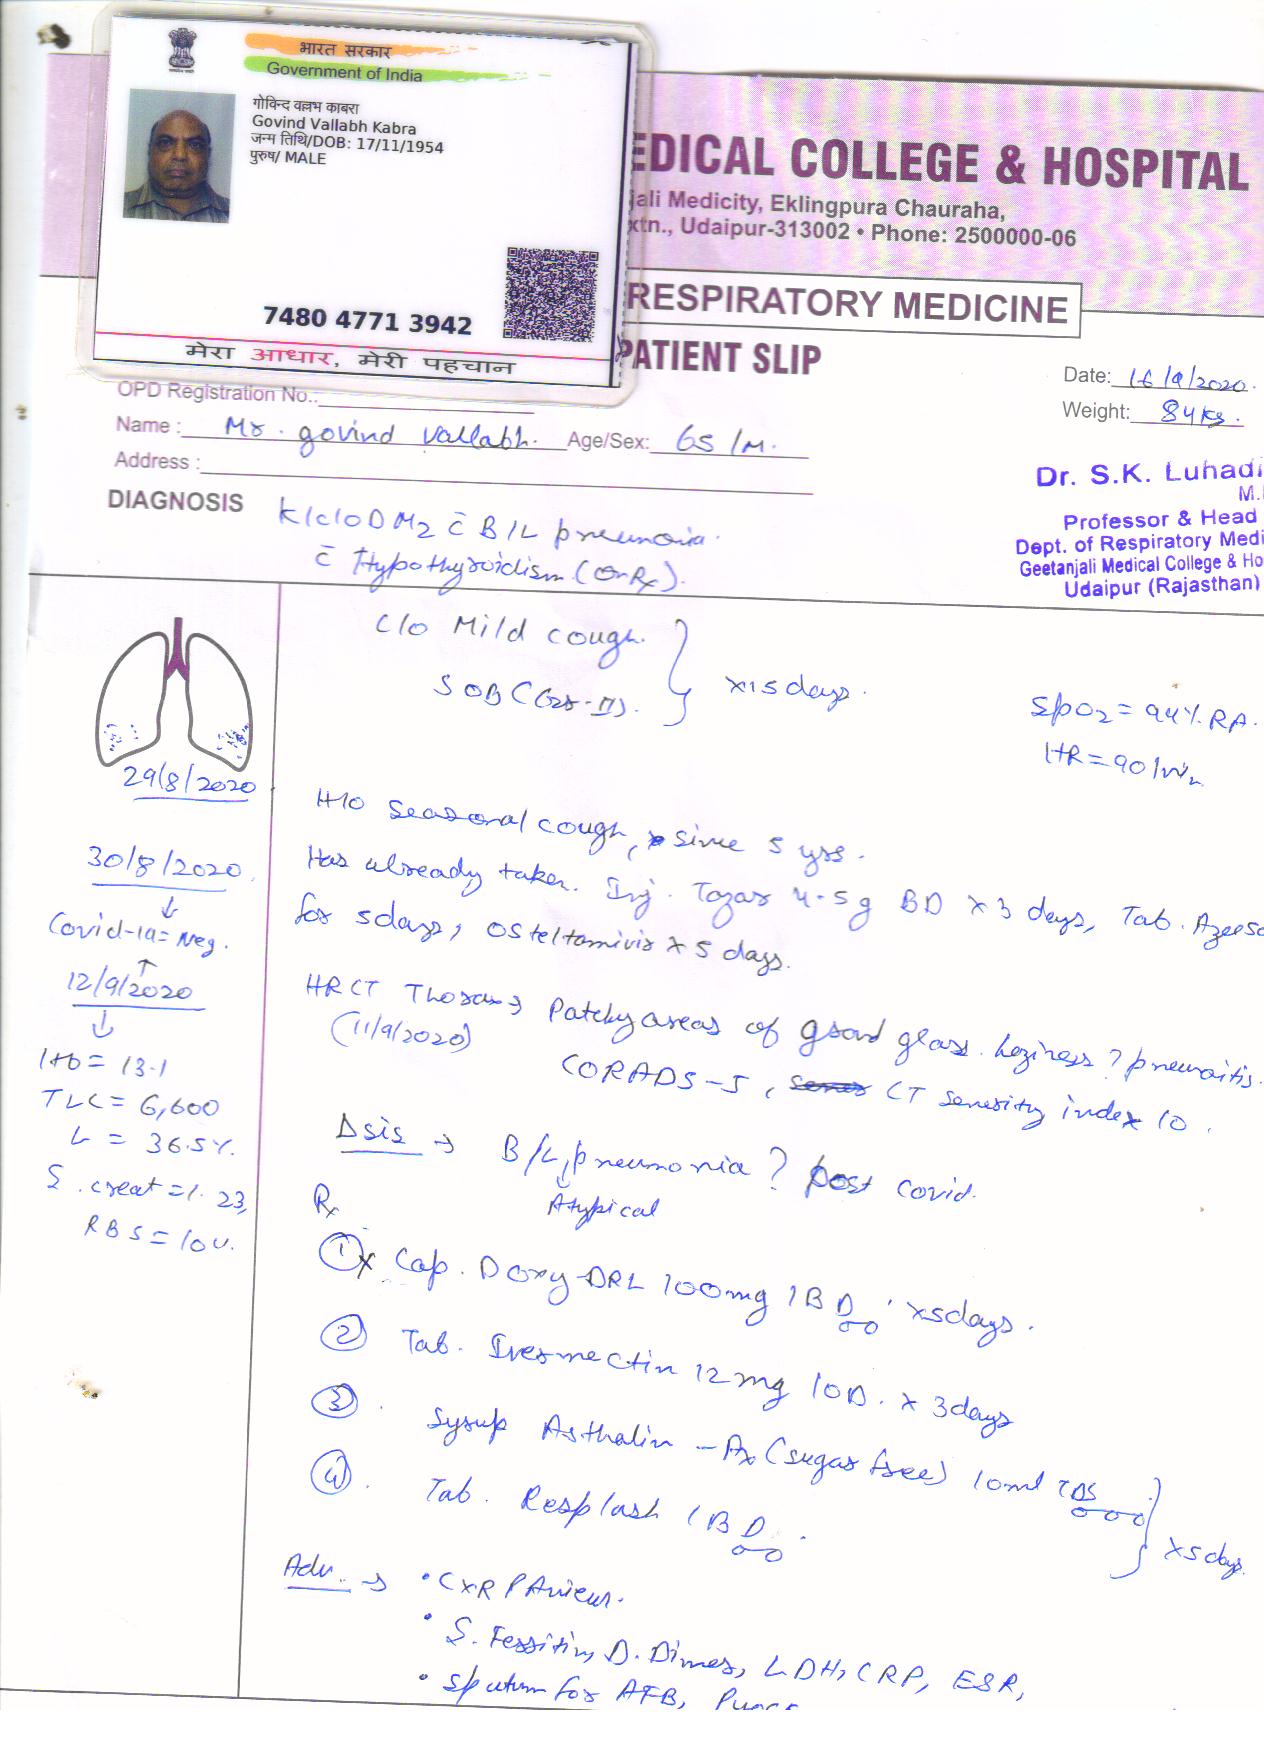 भारत सरकार
Government of India
गोविन्द वल्लभ काबरा
Govind Vallabh Kabra
जन्म तिथि/DOB: 17/11/1954
पुरुष/ MALE
7480 4771 3942
मेरा आधार, मेरी पहचान
EDICAL COLLEGE & HOSPITAL
jali Medicity, Eklingpura Chauraha,
xtn., Udaipur-313002 • Phone: 2500000-06
RESPIRATORY MEDICINE
PATIENT SLIP
Date: 16/9/2020
Weight: 84 kg.
OPD Registration No..
Name : Mr. govind Vallabh. Age/Sex: 65/M.
Address :
Dr. S.K. Luhadi
M.
Professor & Head
Dept. of Respiratory Medi
Geetanjali Medical College & Ho
Udaipur (Rajasthan)
DIAGNOSIS K/c/o DM2 c̄ B/L pneumonia.
c̄ Hypothyroidism (On Rx).
C/o Mild cough.
SOB (Gr-II). x 15 days.
SpO2 = 94% RA.
HR = 90/min
29/8/2020
H/o Seasonal cough, since 5 yrs.
Has already taken. Inj. Tazar 4.5g BD x 3 days, Tab.
for 5 days, Osteltamivir x 5 days.
HRCT Thorax → Patchy areas of ground glass haziness ? pneumonitis.
(11/9/2020)
CORADS-5, CT severity index 10.
30/8/2020
↓
Covid-19 = Neg.
↑
12/9/2020
↓
Hb = 13.1
TLC = 6,600
L = 36.5%.
S. creat = 1.23,
RBS = 104.
Δsis → B/L pneumonia ? post covid.
↓
Atypical
Rx
① x Cap. Doxy-DRL 100mg 1 BD x 5 days.
② Tab. Ivermectin 12 mg 1 OD. x 3 days
③ Syrup Asthalin - Ax (sugar free) 10ml TDS
④ Tab. Resplash 1 BD x 5 days.
Adv. → • CXR PA view.
• S. Ferritin, D. Dimer, LDH, CRP, ESR,
• Sputum for AFB,